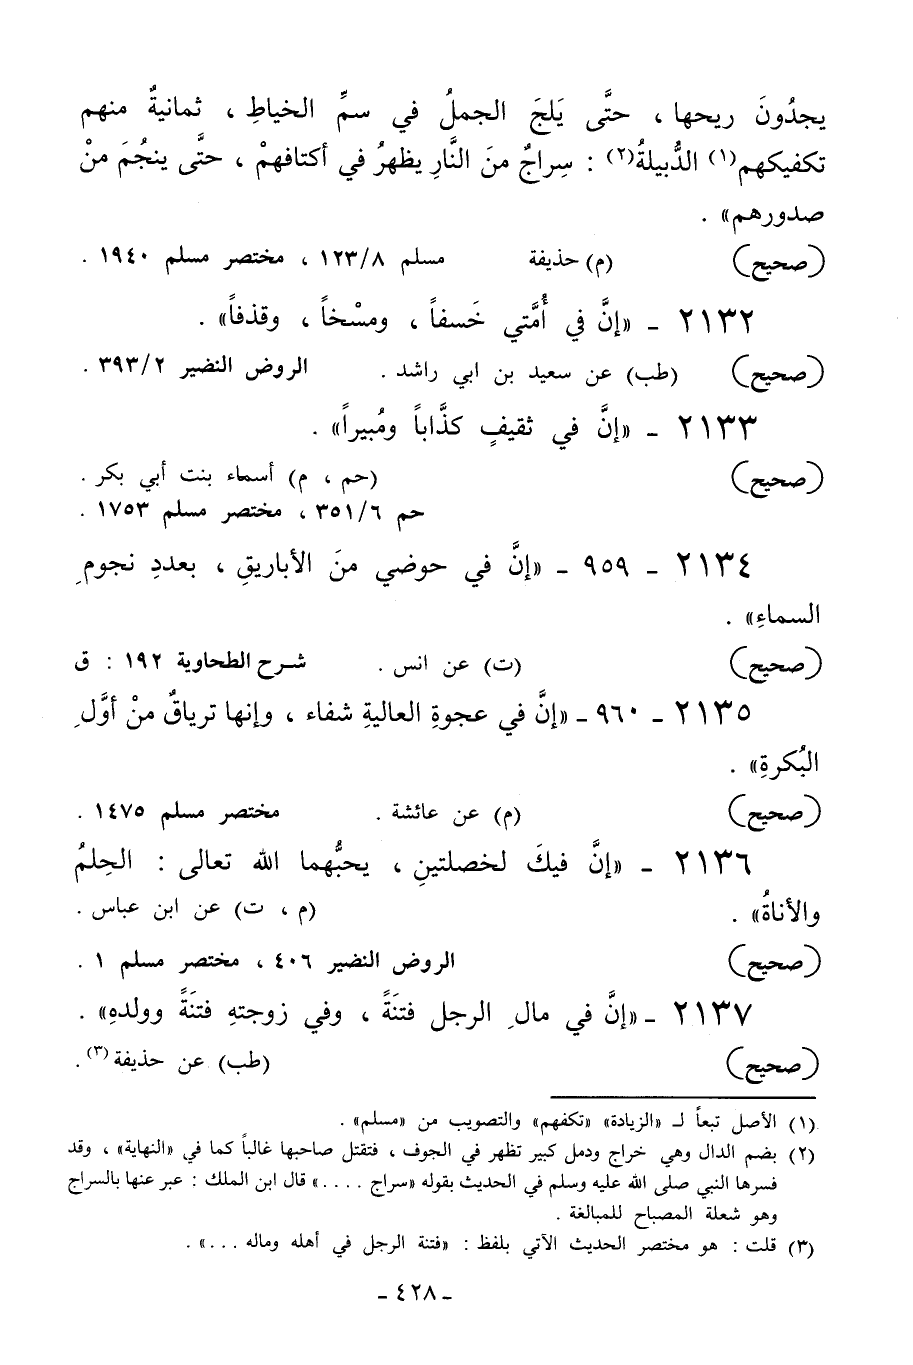 يجدُونَ ريحها ، حتَّى يَلجَ الجملُ في سمِّ الخياطِ ، ثمانيةٌ منهم
تكفيكهم(١) الدُّبيلةُ(٢) : سِراجٌ منَ النَّارِ يظهرُ في أكتافهمْ ، حتَّى ينجُمَ منْ
صدورهم» .
(صحيح) (م) حذيفة مسلم ١٢٣/٨ ، مختصر مسلم ١٩٤٠ .
٢١٣٢ ـ «إنَّ في أُمَّتي خَسفاً ، ومسْخاً ، وقذفاً» .
(صحيح) (طب) عن سعيد بن ابي راشد . الروض النضير ٣٩٣/٢ .
٢١٣٣ ـ «إنَّ في ثقيفٍ كذَّاباً ومُبيراً» .
(صحيح) (حم ، م) أسماء بنت أبي بكر .
حم ٣٥١/٦ ، مختصر مسلم ١٧٥٣ .
٢١٣٤ ـ ٩٥٩ ـ «إنَّ في حوضي منَ الأباريقِ ، بعددِ نجومِ
السماءِ» .
(صحيح) (ت) عن انس . شرح الطحاوية ١٩٢ : ق
٢١٣٥ ـ ٩٦٠ ـ «إنَّ في عجوةِ العاليةِ شفاء ، وإنها ترياقٌ منْ أوَّلِ
البُكرةِ» .
(صحيح) (م) عن عائشة . مختصر مسلم ١٤٧٥ .
٢١٣٦ ـ «إنَّ فيكَ لخصلتينِ ، يحبُّهما الله تعالى : الحِلمُ
والأناةُ» . (م ، ت) عن ابن عباس .
(صحيح) الروض النضير ٤٠٦ ، مختصر مسلم ١ .
٢١٣٧ ـ «إنَّ في مالِ الرجل فتنَةً ، وفي زوجتهِ فتنَةً وولدهِ» .
(صحيح) (طب) عن حذيفة(٣) .
(١) الأصل تبعاً لـ «الزيادة» «تكفهم» والتصويب من «مسلم» .
(٢) بضم الدال وهي خراج ودمل كبير تظهر في الجوف ، فتقتل صاحبها غالباً كما في «النهاية» ، وقد
فسرها النبي صلى الله عليه وسلم في الحديث بقوله «سراج ....» قال ابن الملك : عبر عنها بالسراج
وهو شعلة المصباح للمبالغة .
(٣) قلت : هو مختصر الحديث الآتي بلفظ : «فتنة الرجل في أهله وماله ...» .
ـ ٤٢٨ ـ